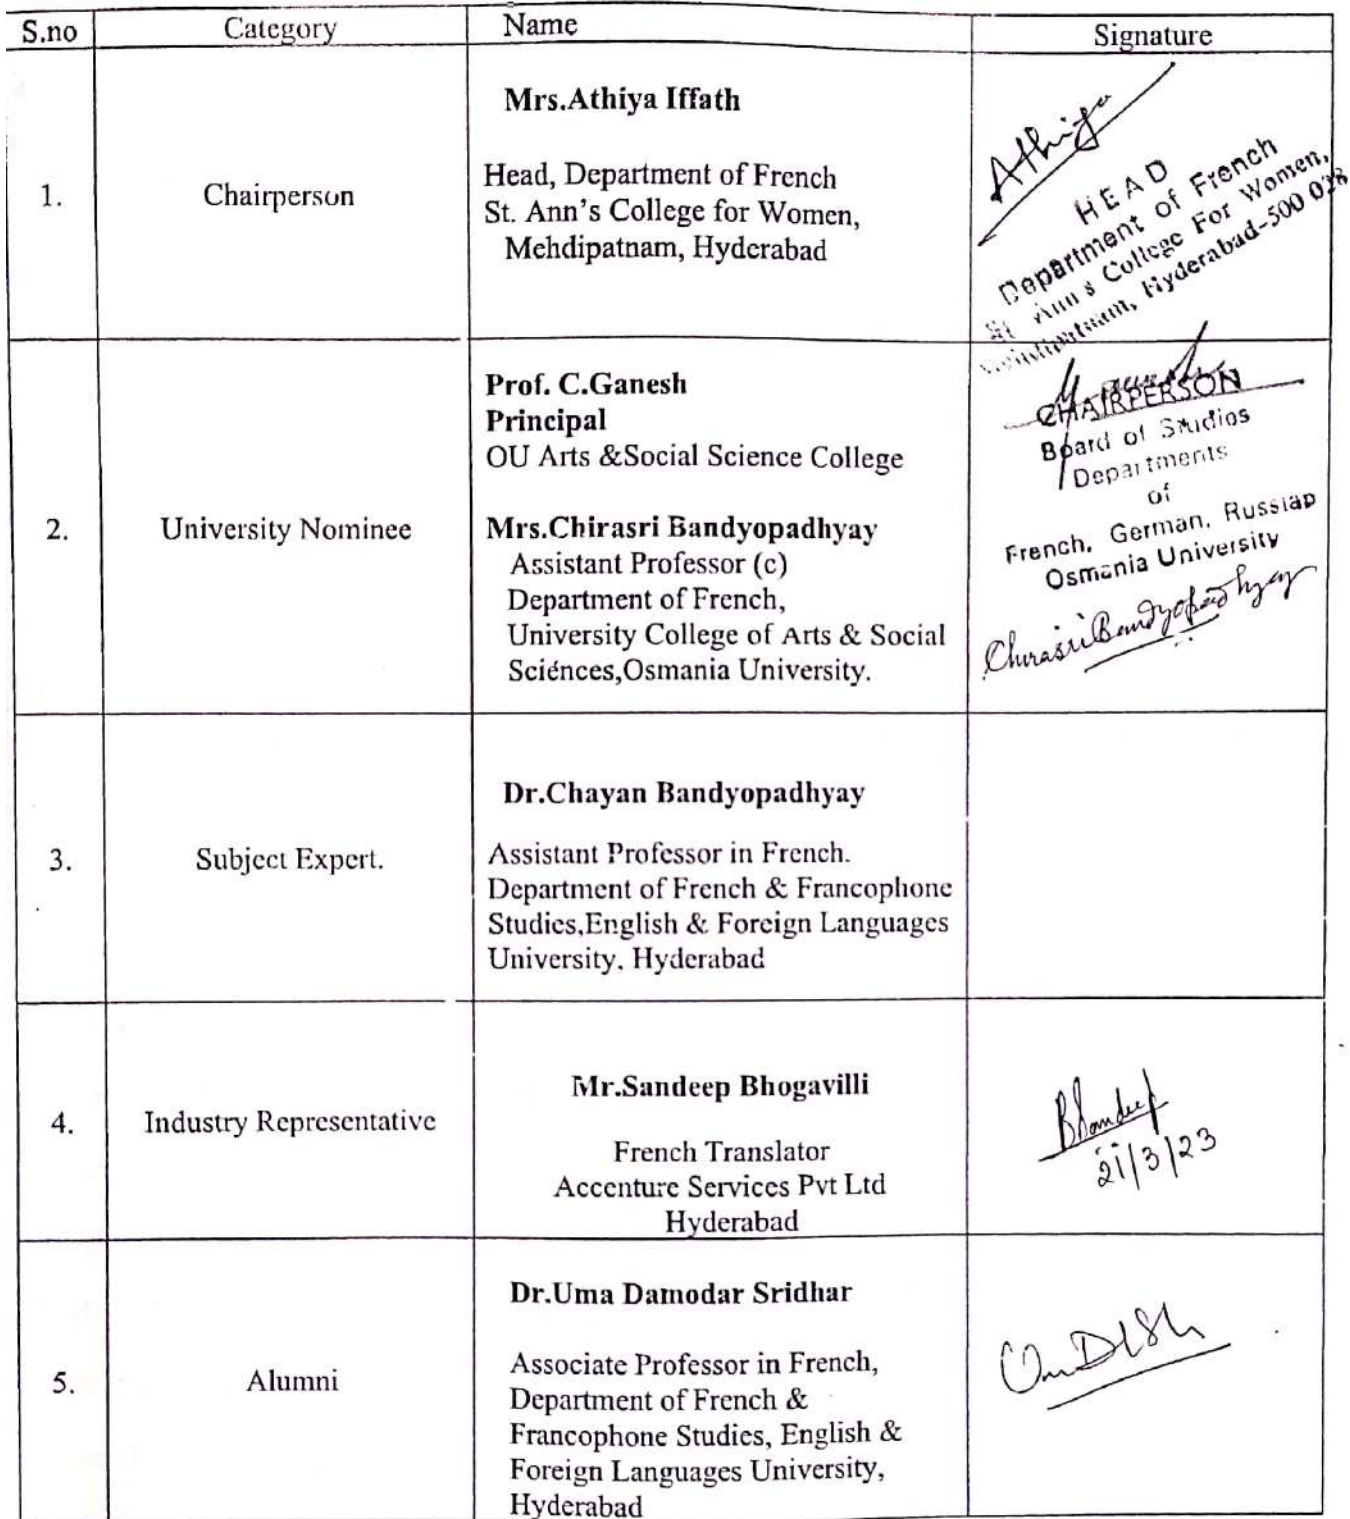 S.no Category Name Signature
Mrs.Athiya Iffath
1. Chairperson
Head, Department of French
St. Ann's College for Women,
Mehdipatnam, Hyderabad
Athiya
HEAD
Department of French
St. Ann's College For Women,
Mehdipatnam, Hyderabad-500 028
2. University Nominee
Prof. C.Ganesh
Principal
OU Arts &Social Science College
Mrs.Chirasri Bandyopadhyay
Assistant Professor (c)
Department of French,
University College of Arts & Social
Sciénces,Osmania University.
CHAIRPERSON
Board of Studies
Departments
of
French, German, Russian
Osmania University
Chirasri Bandyopadhyay
3. Subject Expert.
Dr.Chayan Bandyopadhyay
Assistant Professor in French.
Department of French & Francophone
Studies,English & Foreign Languages
University, Hyderabad
4. Industry Representative
Mr.Sandeep Bhogavilli
French Translator
Accenture Services Pvt Ltd
Hyderabad
BSandeep
21/3/23
5. Alumni
Dr.Uma Damodar Sridhar
Associate Professor in French,
Department of French &
Francophone Studies, English &
Foreign Languages University,
Hyderabad